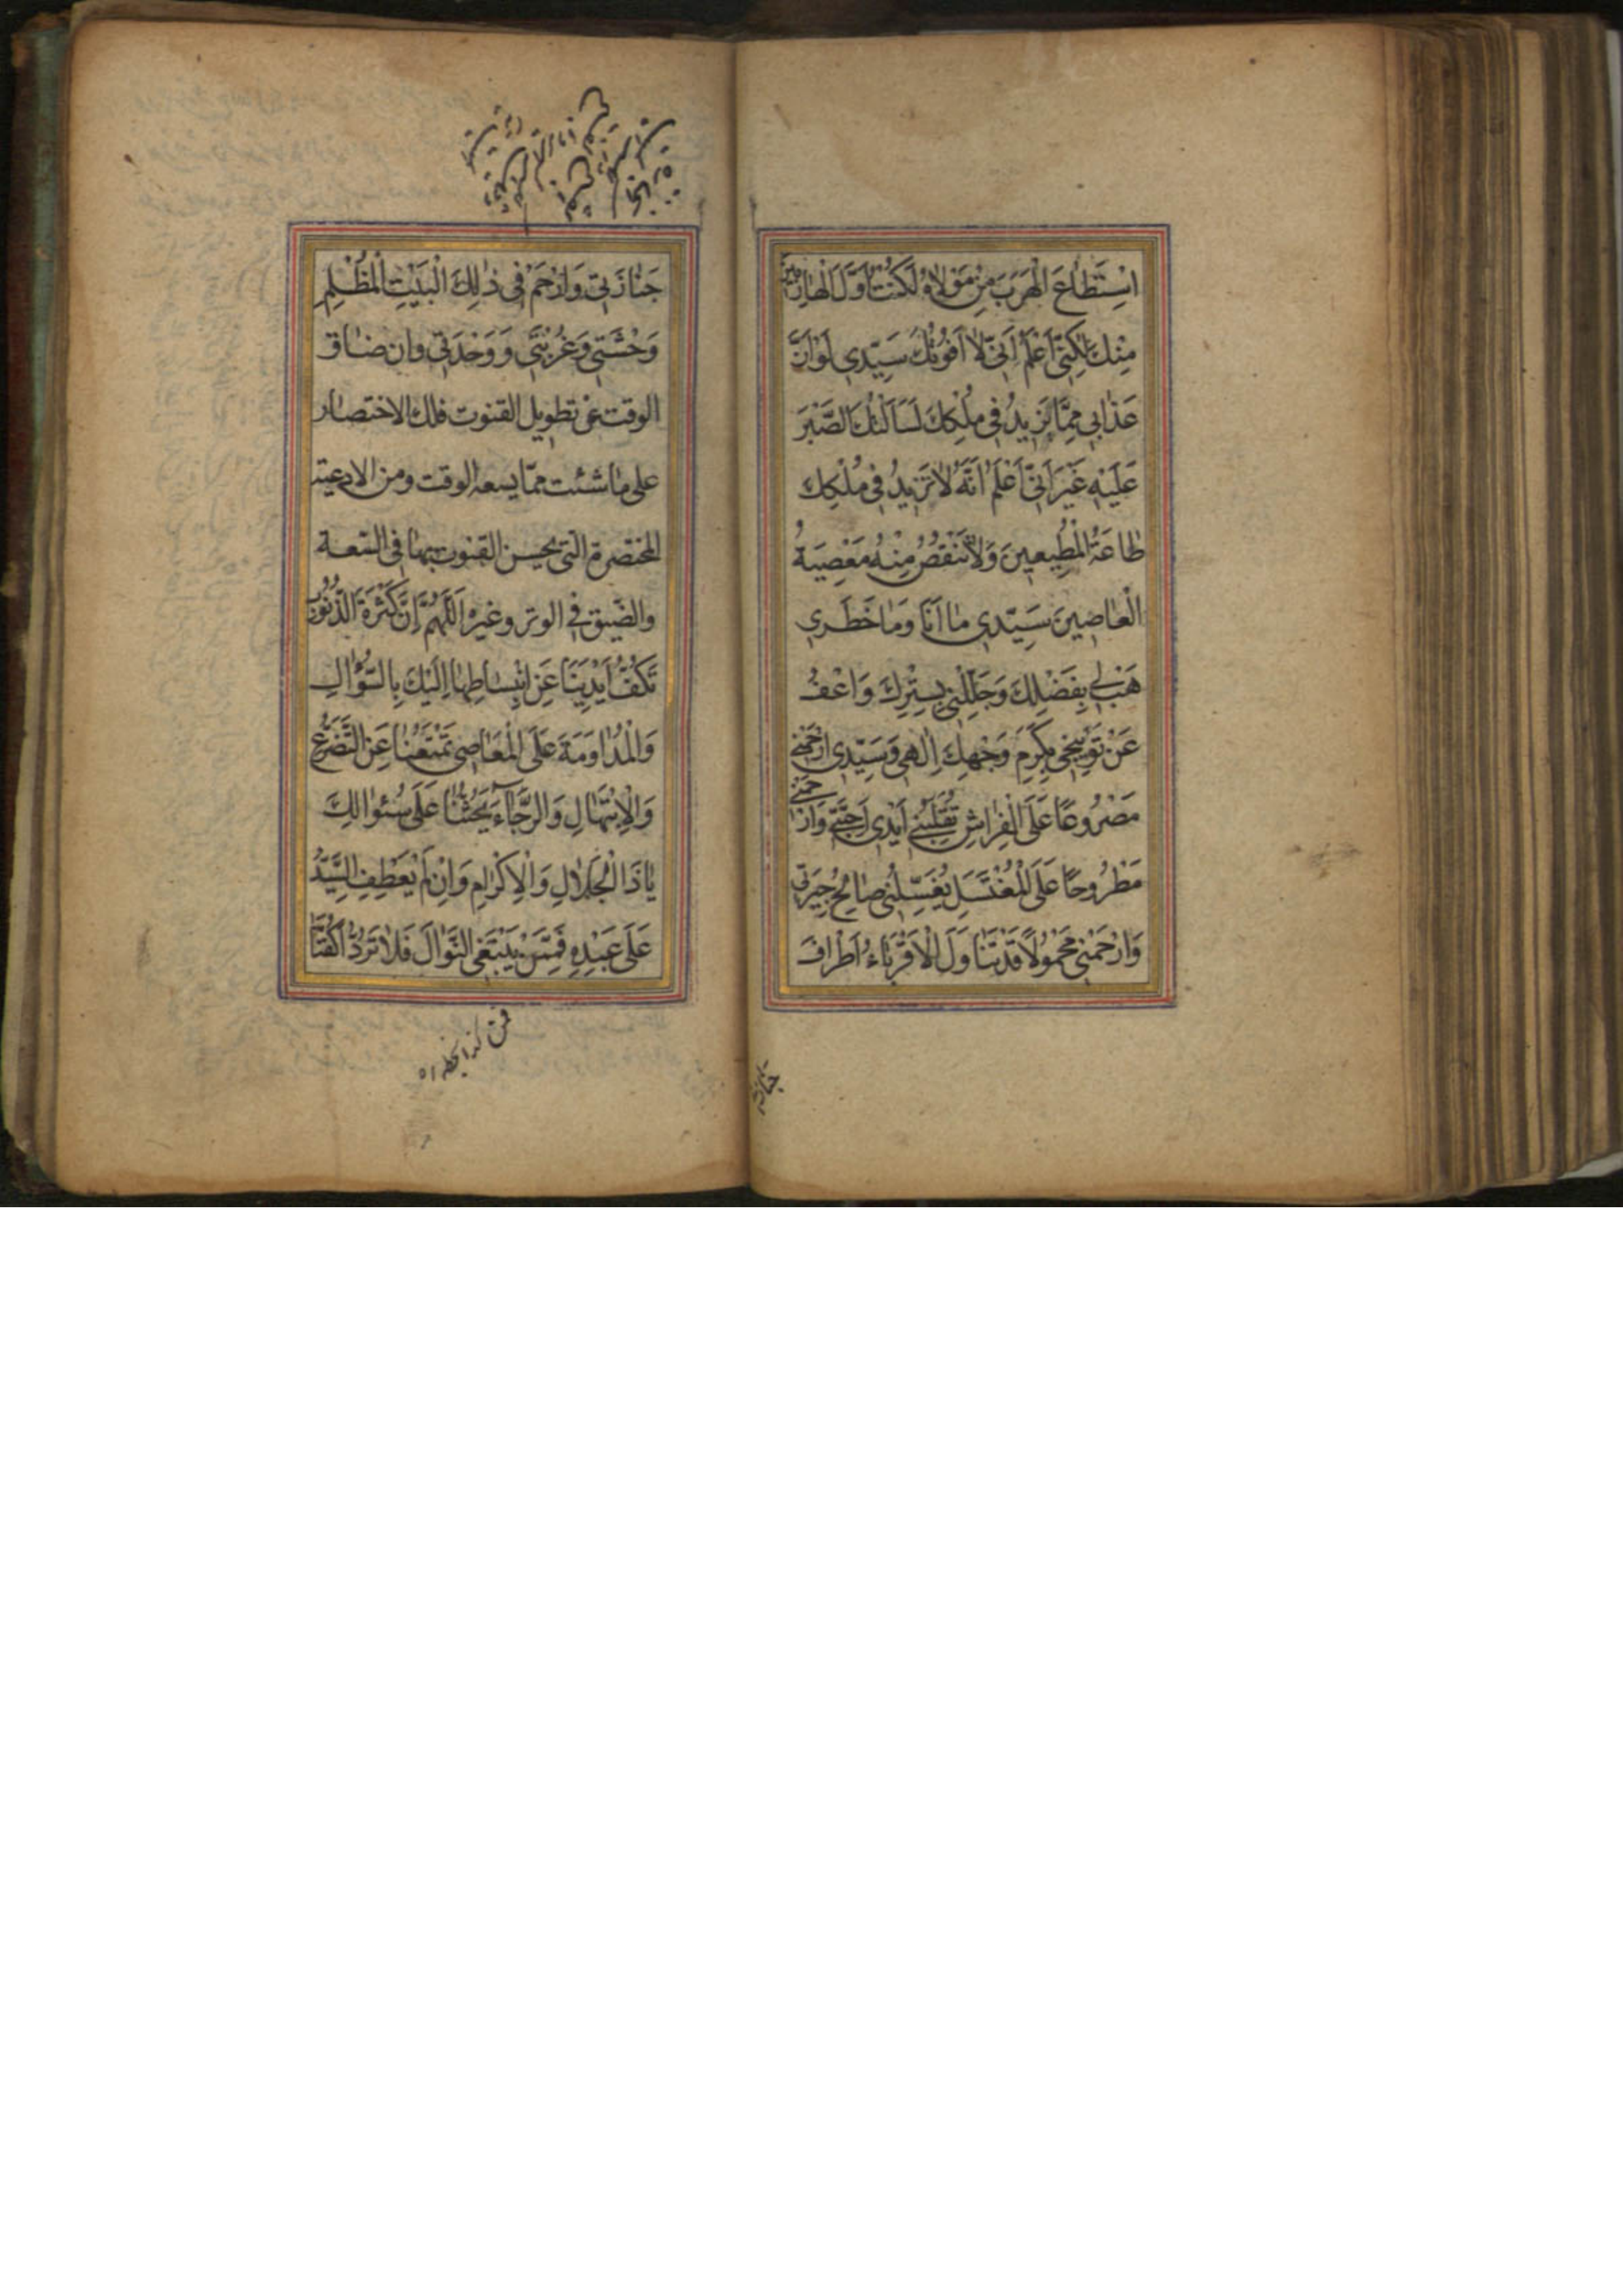 اسْتَطَاعَ الْهَرَبَ مِنْ مَوْلَاهُ لَكُنْتُ اَوَّلَ الْهَارِبِينَ
مِنْكَ لٰكِنّي اَعْلَمُ اَنّي لَا اَفُوتُكَ سَيِّدِي لَوْ اَنَّ
عَذَابِي مِمَّا يَزِيدُ فِي مُلْكِكَ لَسَاَلْتُكَ الصَّبْرَ
عَلَيْهِ غَيْرَ اَنّي اَعْلَمُ اَنَّهُ لَا تَزِيدُ فِي مُلْكِكَ
طَاعَةُ الْمُطِيعِينَ وَلَا تَنْقُصُ مِنْهُ مَعْصِيَةُ
الْعَاصِينَ سَيِّدِي مَا اَنَا وَمَا خَطَرِي
هَبْ لِي بِفَضْلِكَ وَجَلِّلْنِي بِسِتْرِكَ وَاعْفُ
عَنْ تَوْبِيخِي بِكَرَمِ وَجْهِكَ اِلٰهِي وَسَيِّدِي ارْحَمْنِي
مَصْرُوعًا عَلَى الْفِرَاشِ تُقَلِّبُنِي اَيْدِي اَحِبَّتِي وَارْحَمْنِي
مَطْرُوحًا عَلَى الْمُغْتَسَلِ يُغَسِّلُنِي صَالِحُ جِيرَتِي
وَارْحَمْنِي مَحْمُولًا قَدْ تَنَاوَلَ الْاَقْرِبَاءُ اَطْرَافَ
جنازتي
جَنَازَتِي وَارْحَمْ فِي ذٰلِكَ الْبَيْتِ الْمُظْلِمِ
وَحْشَتِي وَغُرْبَتِي وَوَحْدَتِي وان ضاق
الوقت عن تطويل القنوت فلك الاختصار
على ما شئت ممّا يسعه الوقت ومن الادعية
المختصرة التي يحسن القنوت بها في السّعة
والضّيق في الوتر وغيره اَللّٰهُمَّ اِنَّ كَثْرَةَ الذُّنُوبِ
تَكُفُّ اَيْدِيَنَا عَنِ انْبِسَاطِهَا اِلَيْكَ بِالسُّؤَالِ
وَالْمُدَاوَمَةَ عَلَى الْمَعَاصِي تَمْنَعُنَا عَنِ التَّضَرُّعِ
وَالْاِبْتِهَالِ وَالرَّجَاءَ يَحُثُّنَا عَلَى سُئَوالِكَ
يَا ذَا الْجَلَالِ وَالْاِكْرَامِ وَاِنْ لَمْ يَعْطِفِ السَّيِّدُ
عَلَى عَبْدِهِ فَمِمَّنْ يَبْتَغِي النَّوَالَ فَلَا تَرُدَّ اَكُفَّنَا